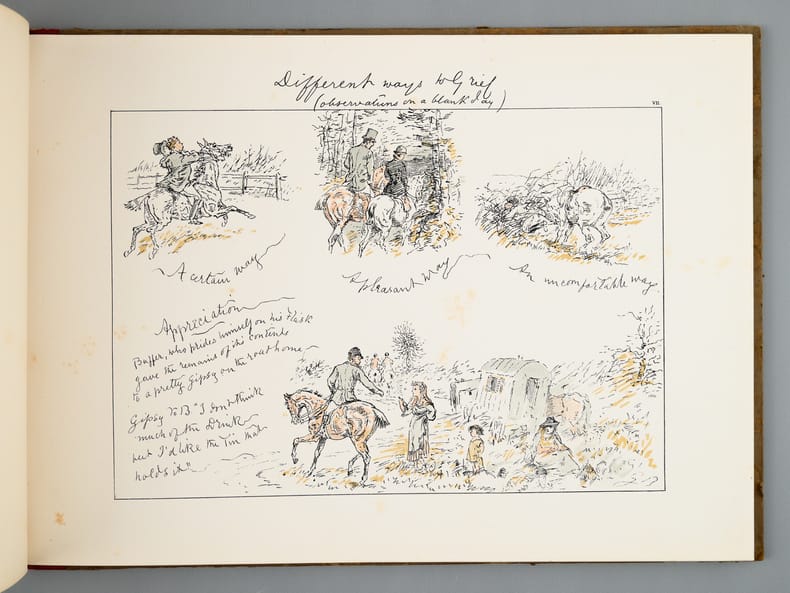 Different ways to Grief
(observations on a blank day)
VII.
A certain way
A pleasant way
An uncomfortable way
Appreciation
Buffer, who prides himself on his Flask
gave the remains of its contents
to a pretty Gipsy on the road home
Gipsy to B "I don't think
much of the Drink
but I'd like the Tin that
holds it"